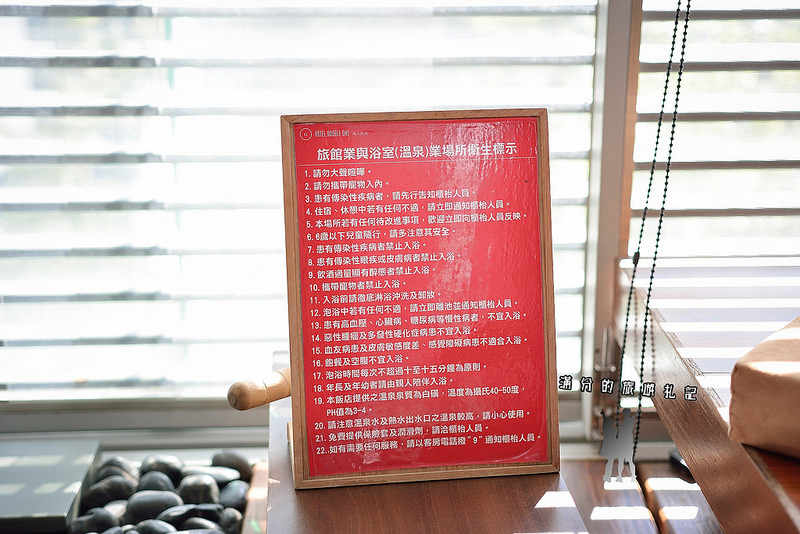 HOTEL DOUBLE ONE
旅館業與浴室(溫泉)業場所衛生標示
1. 請勿大聲喧嘩。
2. 請勿攜帶寵物入內。
3. 患有傳染性疾病者，請先行告知櫃枱人員。
4. 住宿、休憩中若有任何不適，請立即通知櫃枱人員。
5. 本場所若有任何待改進事項，歡迎立即向櫃枱人員反映。
6. 6歲以下兒童隨行，請多注意其安全。
7. 患有傳染性疾病者禁止入浴。
8. 患有傳染性眼疾或皮膚病者禁止入浴。
9. 飲酒過量顯有醉態者禁止入浴。
10. 攜帶寵物者禁止入浴。
11. 入浴前請徹底淋浴沖洗及卸妝。
12. 泡浴中若有任何不適，請立即離池並通知櫃枱人員。
13. 患有高血壓、心臟病、糖尿病等慢性病者，不宜入浴。
14. 惡性腫瘤及多發性硬化症病患不宜入浴。
15. 血友病患及皮膚敏感度差、感覺障礙病患不適合入浴。
16. 飽餐及空腹不宜入浴。
17. 泡浴時間每次不超過十至十五分鐘為原則。
18. 年長及年幼者請由親人陪伴入浴。
19. 本飯店提供之溫泉泉質為白磺，溫度為攝氏40-60度，
PH值為3-4。
20. 請注意溫泉水及熱水出水口之溫泉較高，請小心使用。
21. 免費提供保險套及潤滑劑，請洽櫃枱人員。
22. 如有需要任何服務，請以客房電話撥“9”通知櫃枱人員。
滿分的旅遊札記